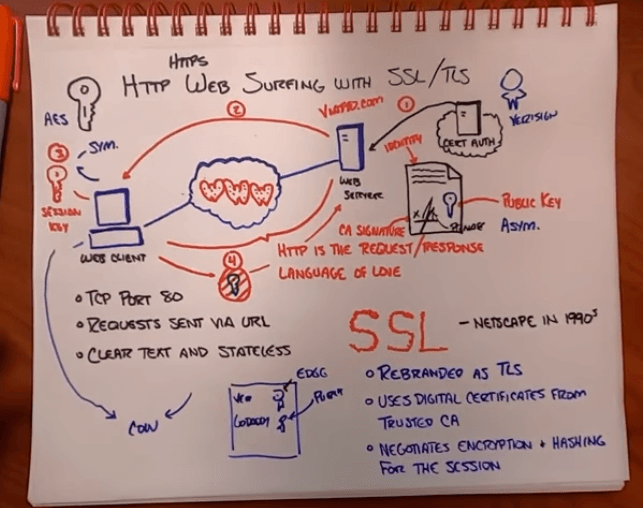 HTTPS
HTTP WEB SURFING WITH SSL/TLS
AES
SYM.
3
SESSION
KEY
2
1
CERT AUTH
VERISIGN
IDENTITY
WEB
SERVER
WWW
WEB CLIENT
4
CA SIGNATURE
PUBLIC KEY
ASYM.
HTTP IS THE REQUEST/RESPONSE
LANGUAGE OF LOVE
• TCP PORT 80
• REQUESTS SENT VIA URL
• CLEAR TEXT AND STATELESS
SSL
- NETSCAPE IN 1990s
• REBRANDED AS TLS
• USES DIGITAL CERTIFICATES FROM
TRUSTED CA
• NEGOTIATES ENCRYPTION + HASHING
FOR THE SESSION